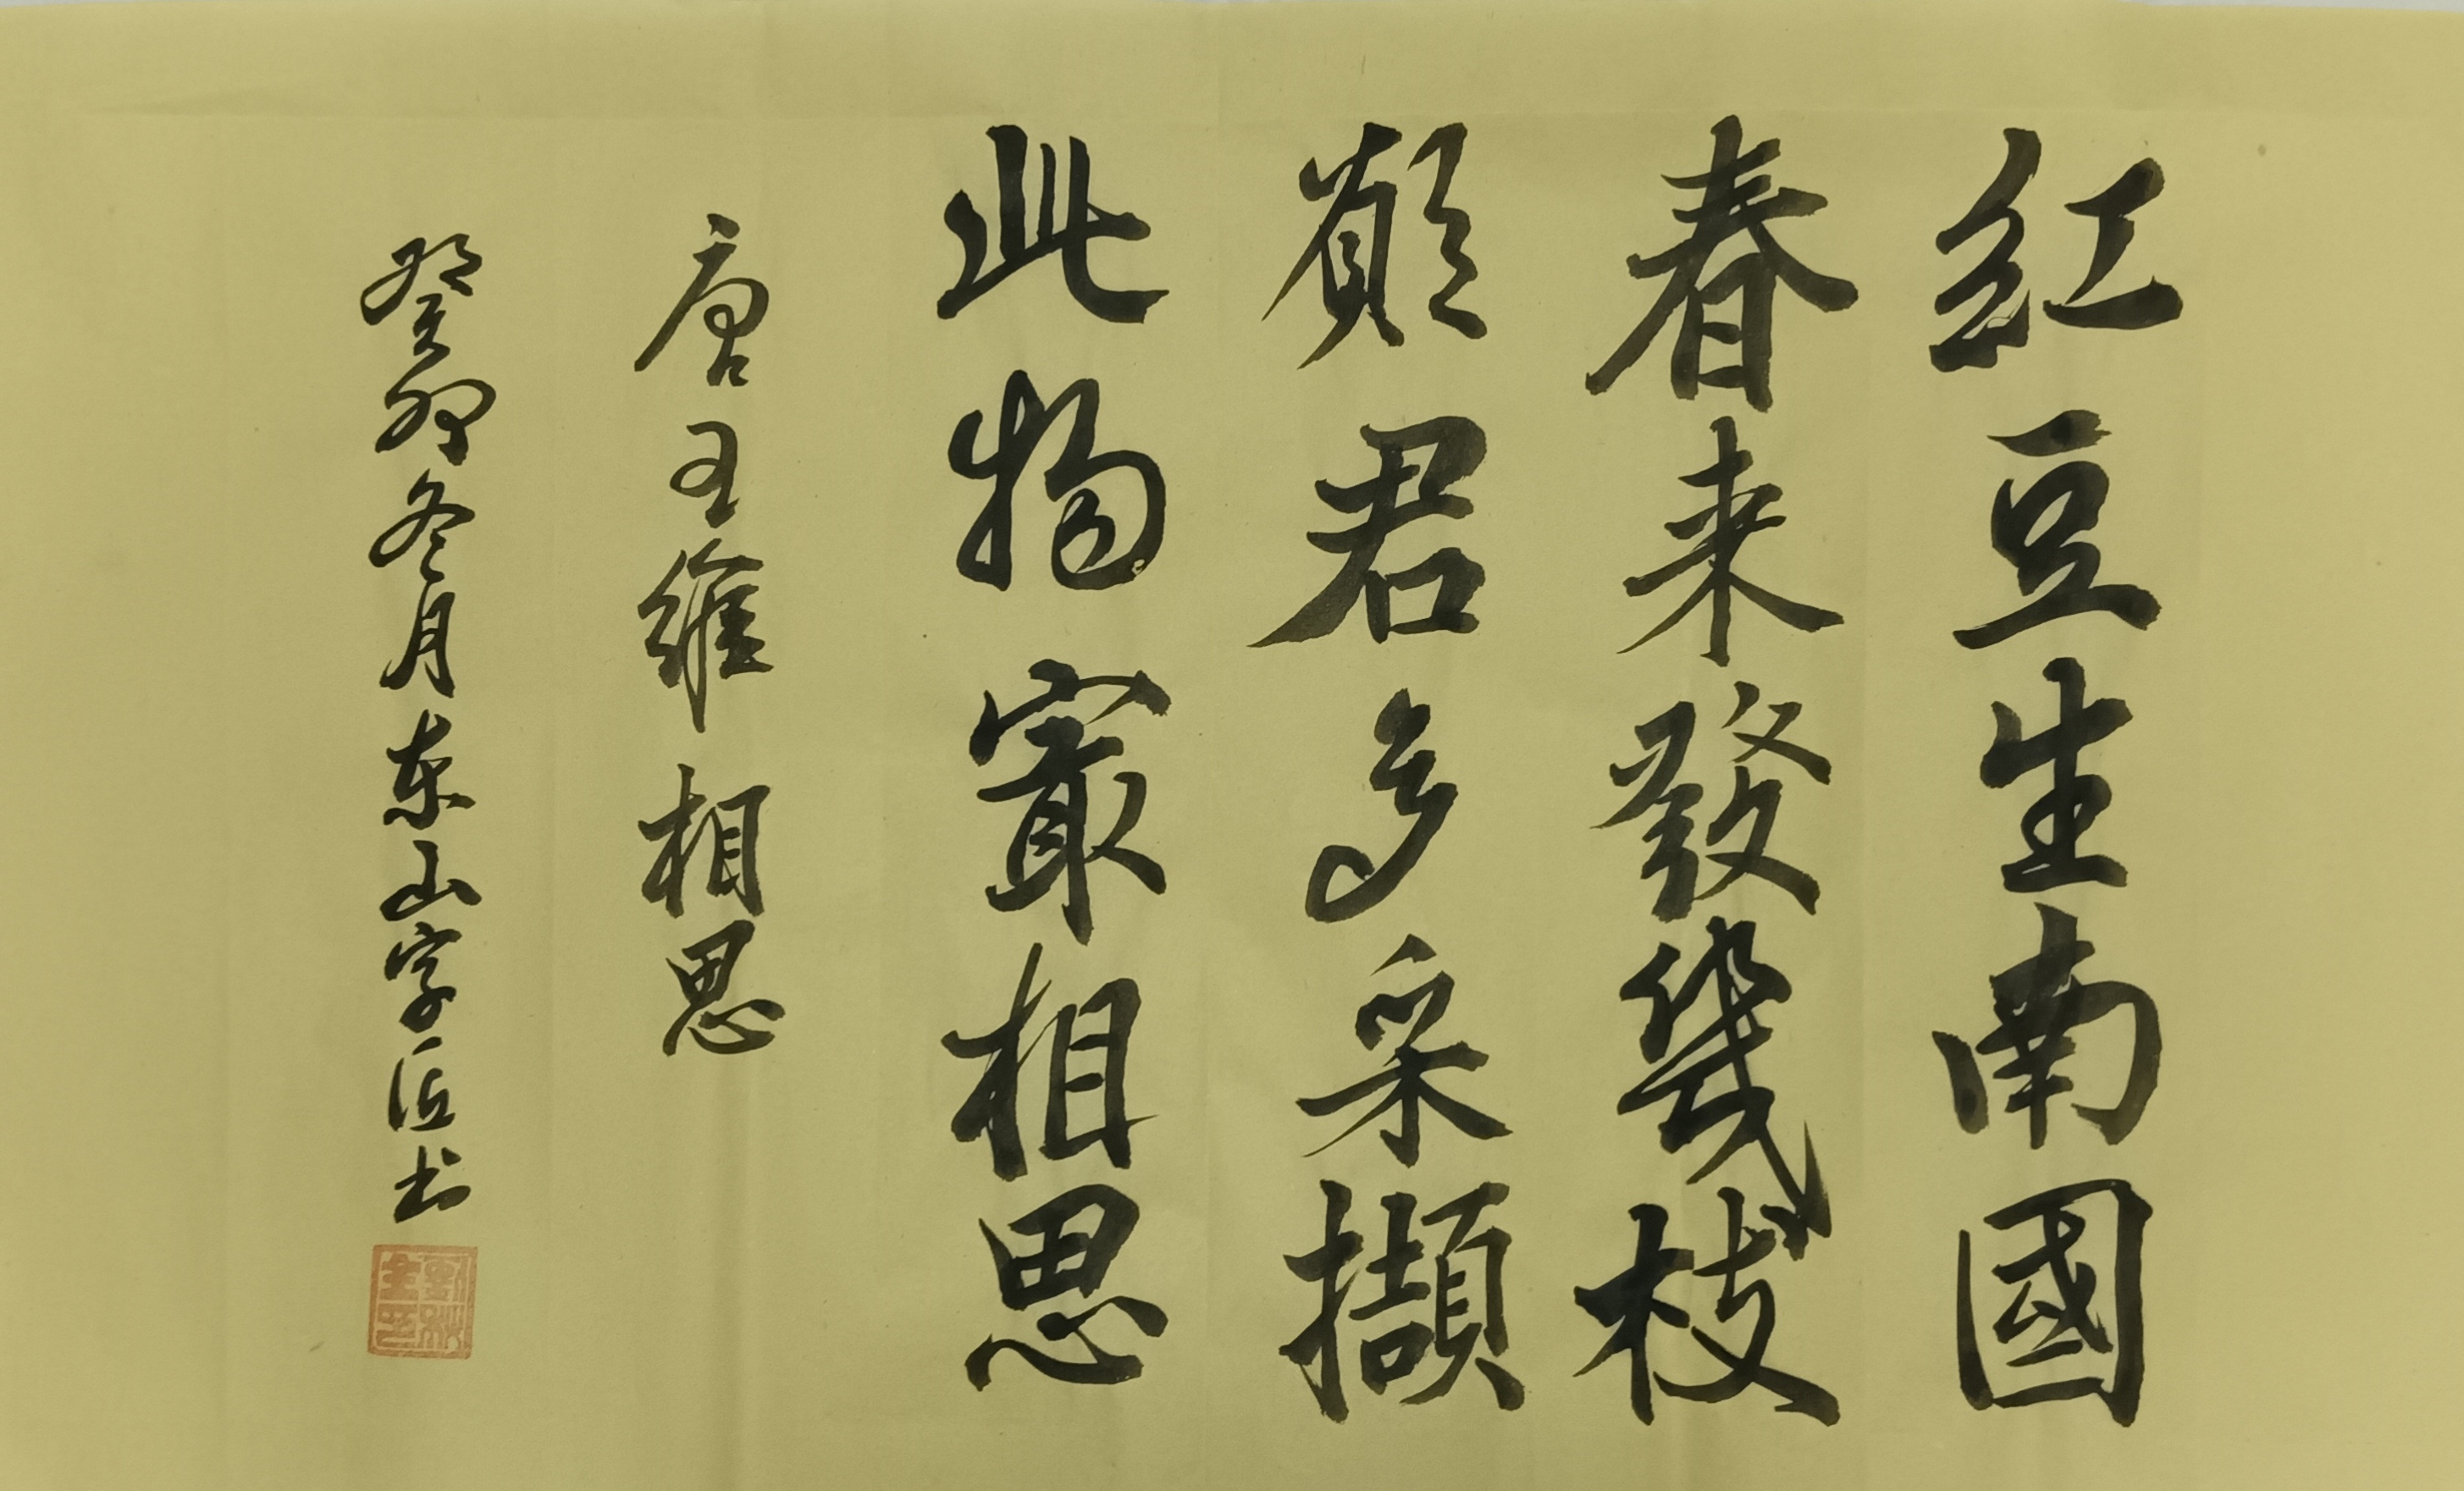 紅豆生南國
春来發幾枝
願君多采擷
此物寂相思
唐王維相思
癸卯冬月东山字匠书